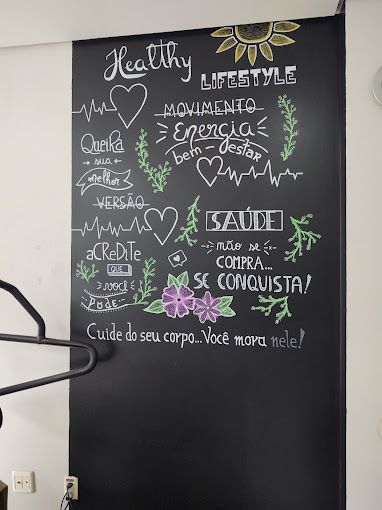 Healthy
LIFESTYLE
MOVIMENTO
Energia
bem-estar
Queira
sua
melhor
VERSÃO
SAÚDE
não se
COMPRA...
SE CONQUISTA!
aCReDiTe
QUE
você
Pode
Cuide do seu corpo...Você mora nele!